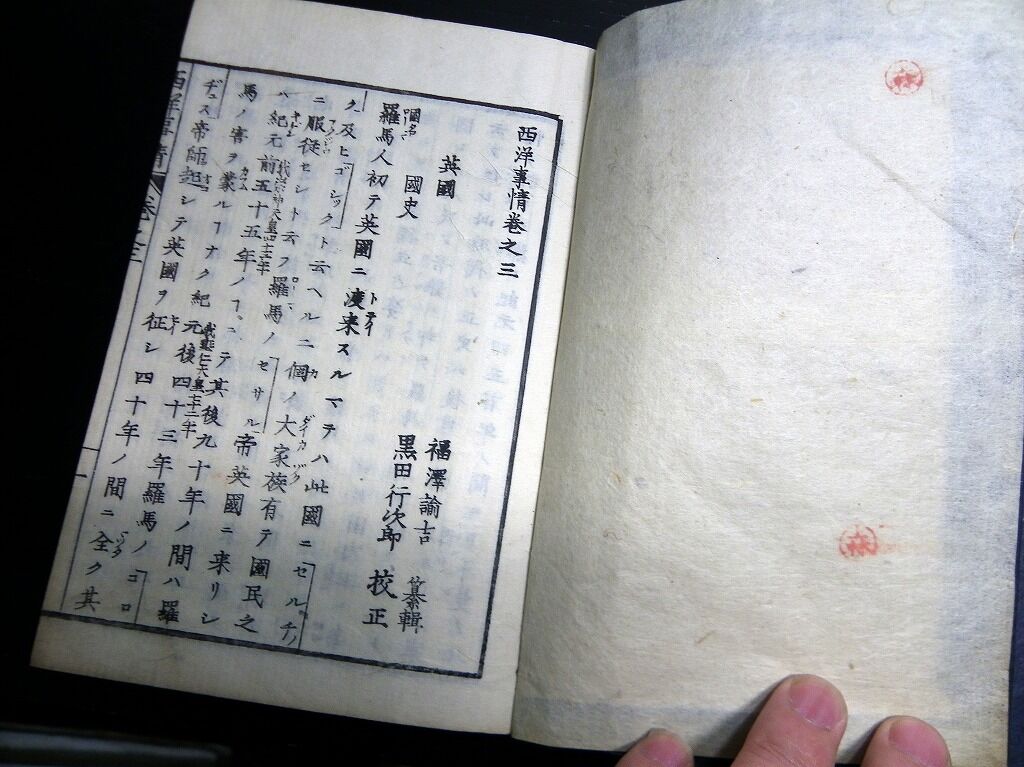 西洋事情卷之三
福澤諭吉 纂輯
黒田行次郎 挍正
英國
國史
羅馬人初テ英國ニ渡来スルマテハ此國ニセルチ
ク及ヒゴシックト云ヘル二個ノ大家族有テ國民之
ニ服従セシト云フ羅馬ノセサル帝英國ニ来リシ
ハ紀元前五十五年ノヿニテ其後九十年ノ間ハ羅
馬ノ害ヲ蒙ルヿナク紀元後四十三年羅馬ノコロ
ヂュス帝師起シテ英國ヲ征シ四十年ノ間ニ全ク其
西洋事情 卷之三